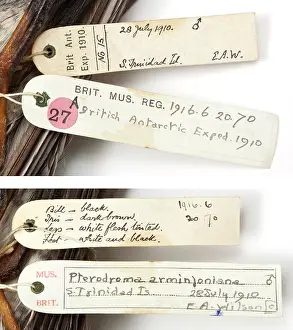 Brit. Ant.
Exp. 1910.
No 15
28 July 1910. ♂
S. Trinidad Id.
E.A.W.
BRIT. MUS. REG. 1916.6 20.70
27
A
British Antarctic Exped. 1910
Bill – black.
Iris – dark brown.
Legs – white flesh tinted.
Feet – white and black.
1916.6
20.70
MUS.
BRIT.
Pterodroma arminjoniana ♂
S. Trinidad Is. 28 July 1910
E.A. Wilson C